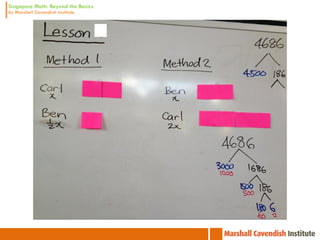 Singapore Math: Beyond the Basics
by Marshall Cavendish Institute
Lesson
Method 1
Carl
x
Ben
½x
Method 2
Ben
x
Carl
2x
4686
4500 186
4686
3000 1686
1000
1500 186
500
180 6
60 2
Marshall Cavendish Institute